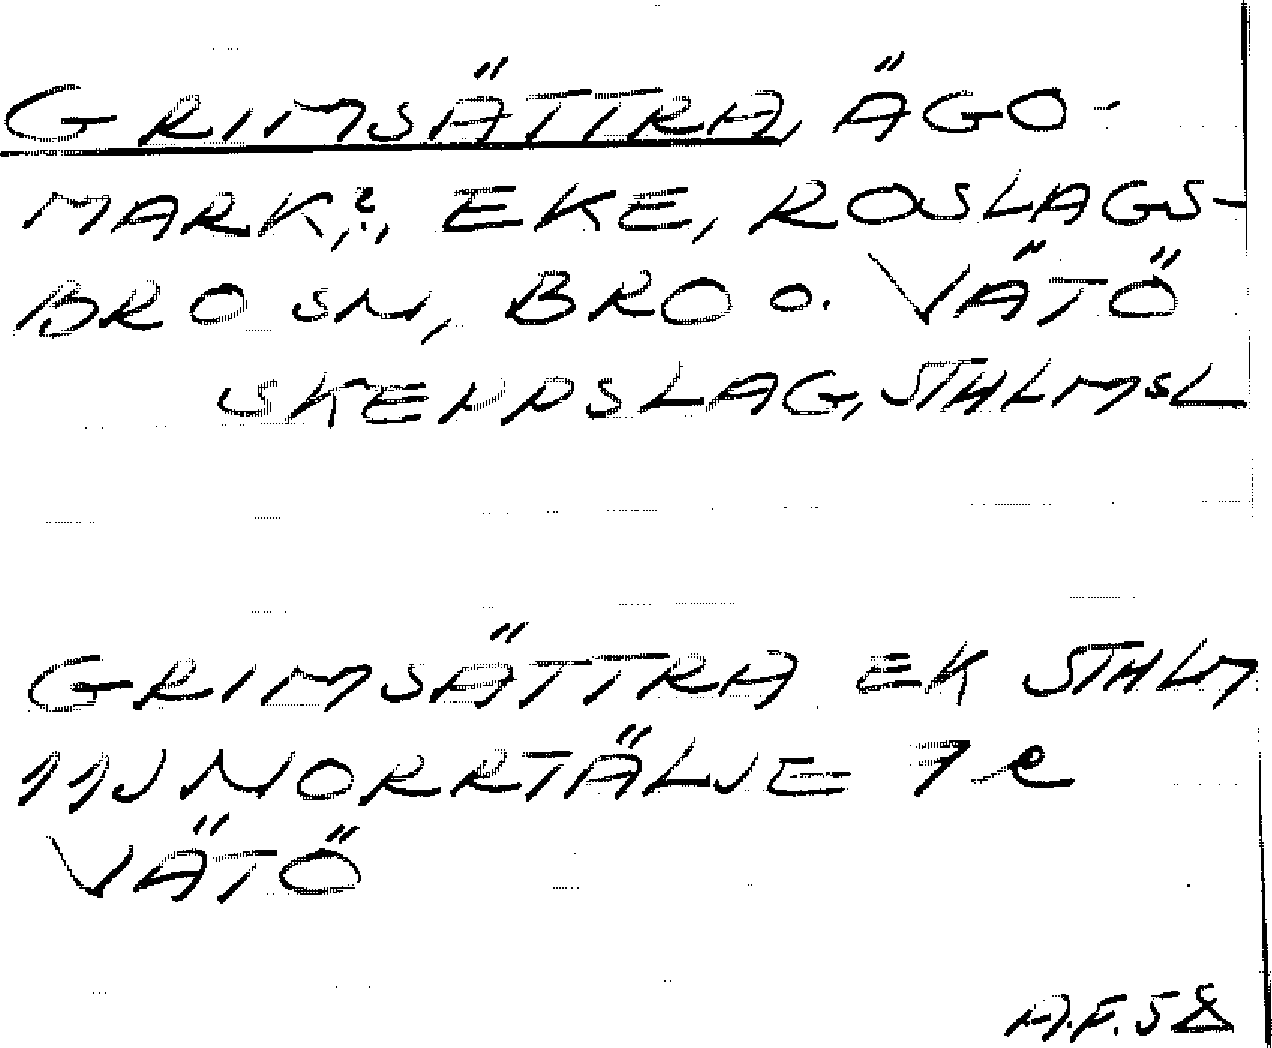 GRIMSÄTTRA, ÄGO-
MARK, EKE, ROSLAGS-
BRO SN, BRO O. VÄTÖ
SKEPPSLAG, STHLMSL
GRIMSÄTTRA EK STHLM
11J NORRTÄLJE 7 e
VÄTÖ
A.F. 58